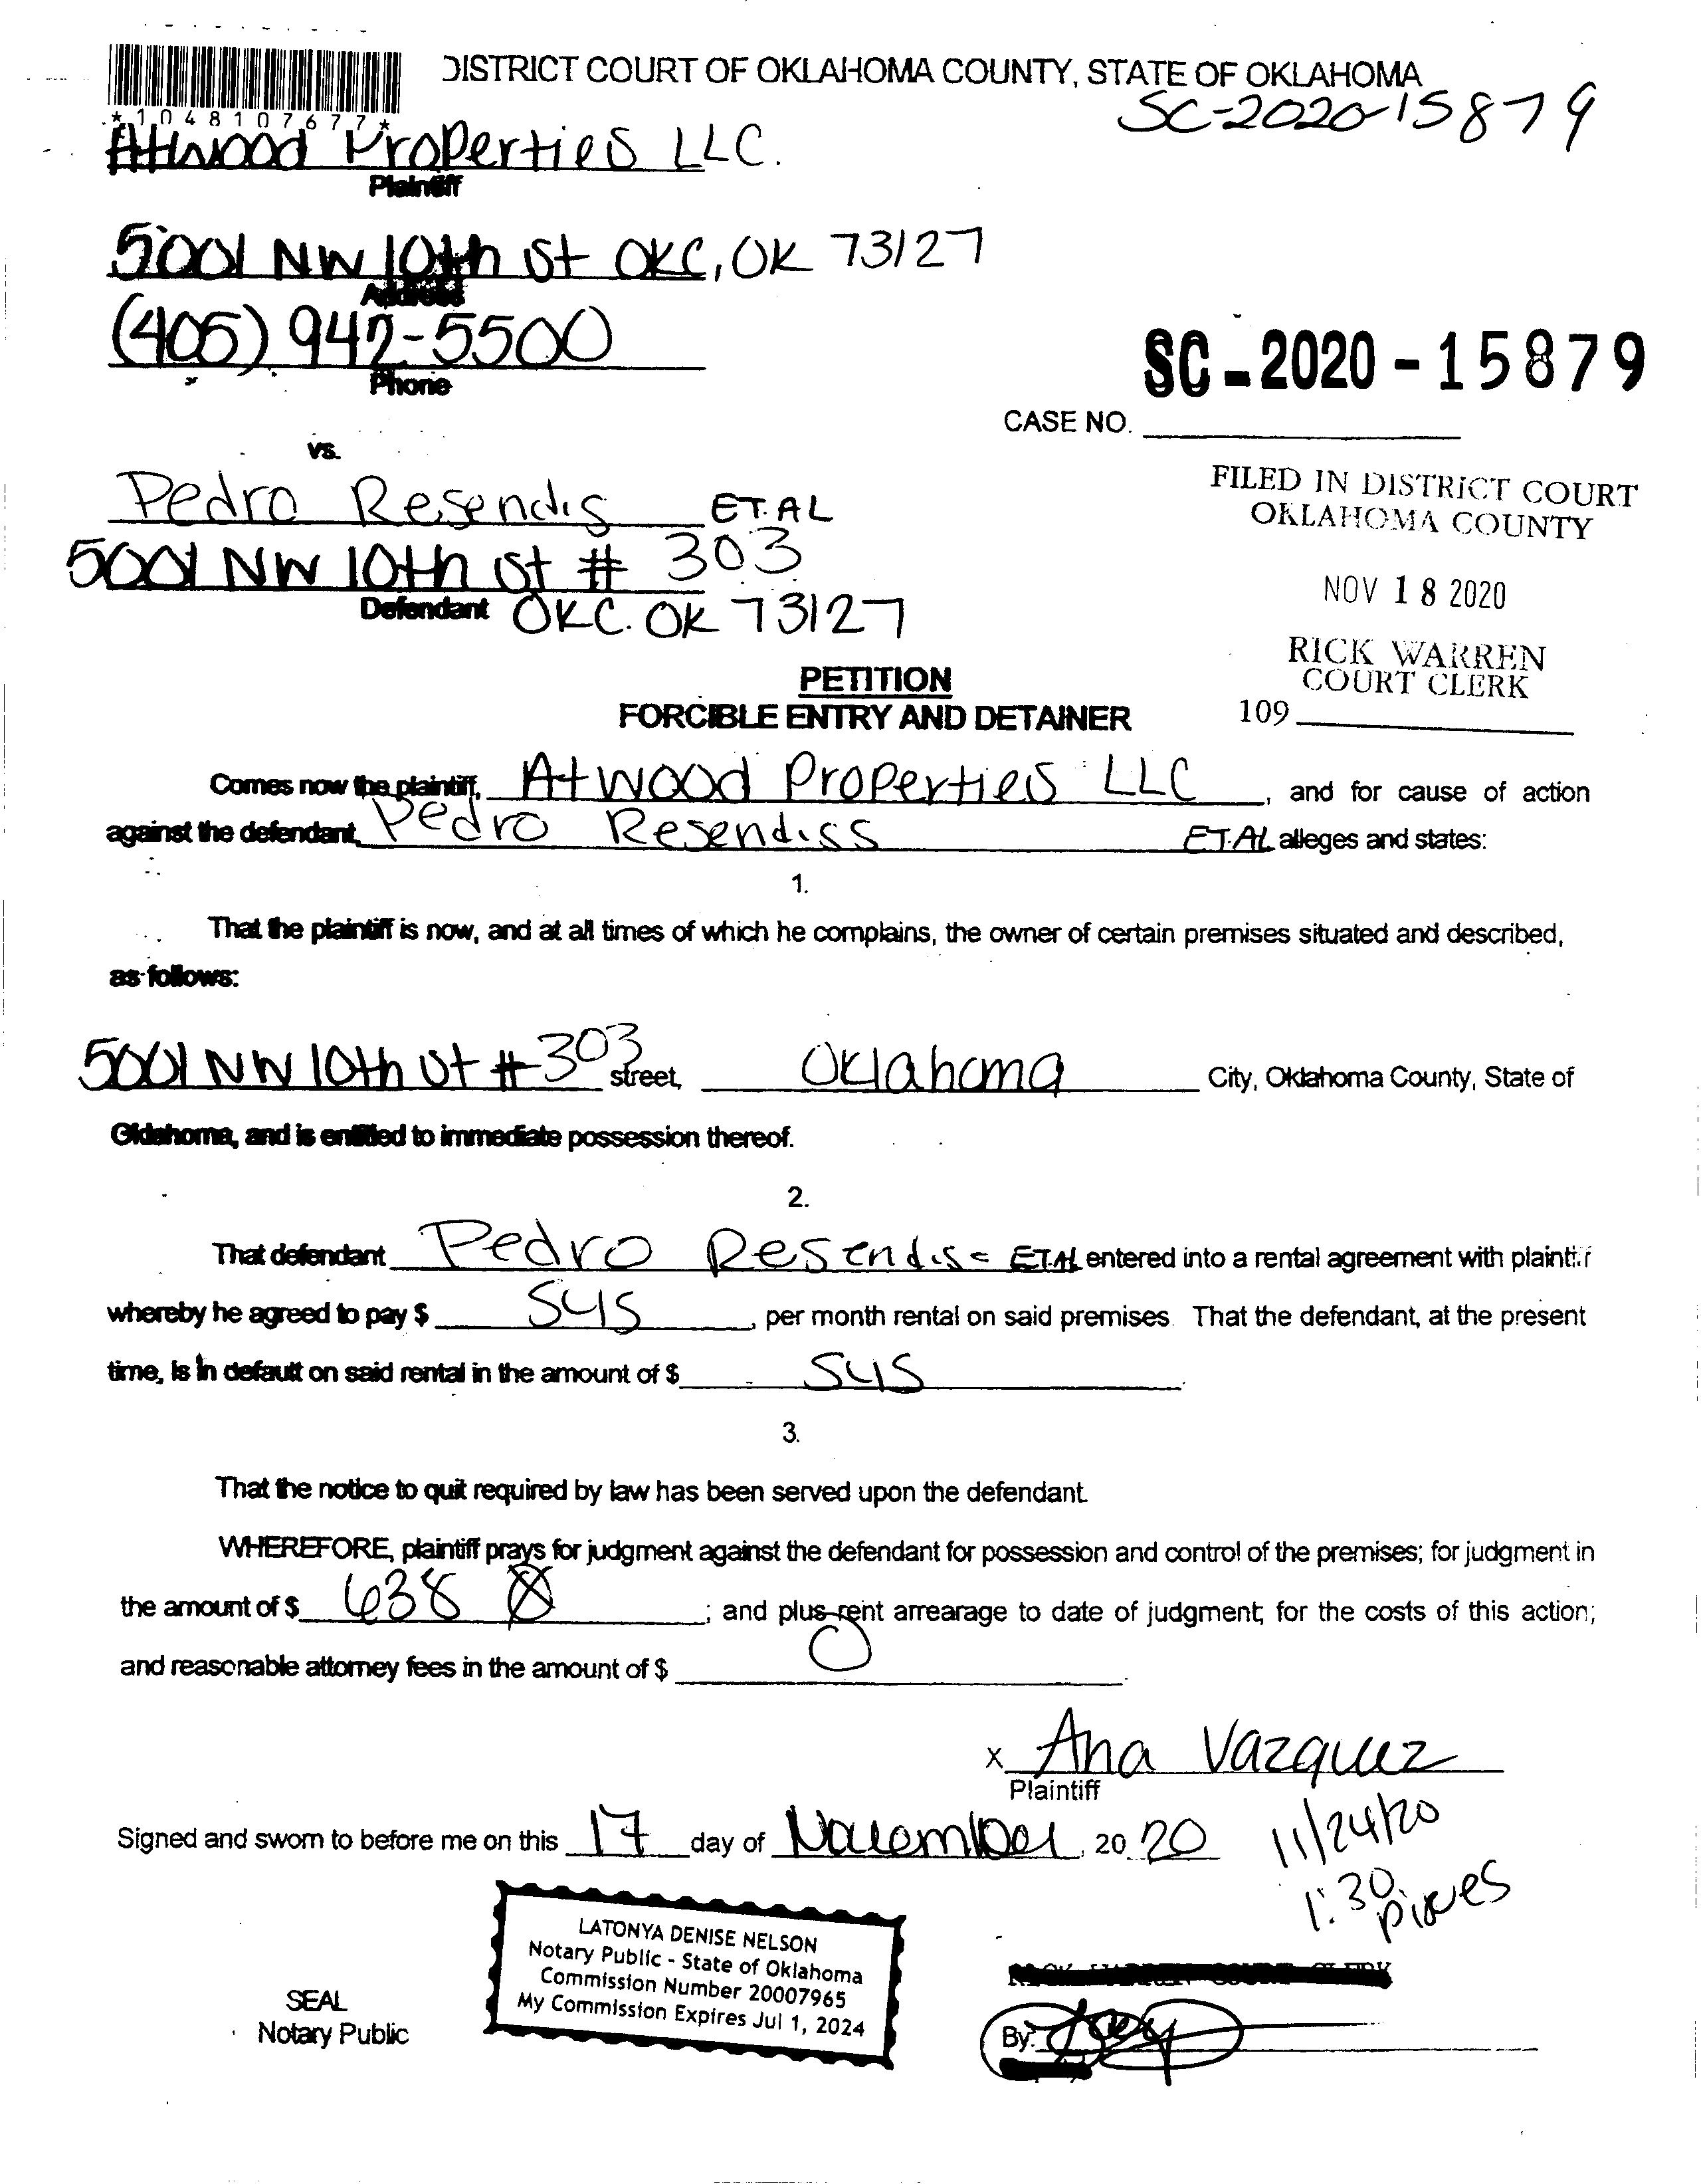 DISTRICT COURT OF OKLAHOMA COUNTY, STATE OF OKLAHOMA
SC-2020-15879
*1048107677*
Atwood Properties LLC.
Plaintiff
5001 NW 10th St OKC, OK 73127
Address
(405) 942-5500
Phone
SC-2020-15879
CASE NO.
vs.
Pedro Resendis ET.AL
5001 NW 10th St # 303
Defendant OKC. OK 73127
FILED IN DISTRICT COURT
OKLAHOMA COUNTY
NOV 18 2020
RICK WARREN
COURT CLERK
109
PETITION
FORCIBLE ENTRY AND DETAINER
Comes now the plaintiff, Atwood Properties LLC, and for cause of action
against the defendant, Pedro Resendiss ET.AL alleges and states:
1.
That the plaintiff is now, and at all times of which he complains, the owner of certain premises situated and described,
as follows:
5001 NW 10th St # 303 street, Oklahoma City, Oklahoma County, State of
Oklahoma, and is entitled to immediate possession thereof.
2.
That defendant Pedro Resendiss ET.AL entered into a rental agreement with plaintiff
whereby he agreed to pay $ 545, per month rental on said premises. That the defendant, at the present
time, is in default on said rental in the amount of $ 545.
3.
That the notice to quit required by law has been served upon the defendant.
WHEREFORE, plaintiff prays for judgment against the defendant for possession and control of the premises; for judgment in
the amount of $ 638; and plus rent arrearage to date of judgment; for the costs of this action;
and reasonable attorney fees in the amount of $ 0.
x Ana Vazquez
Plaintiff
Signed and sworn to before me on this 17 day of November, 20 20
11/24/20
1:30
LATONYA DENISE NELSON
Notary Public - State of Oklahoma
Commission Number 20007965
My Commission Expires Jul 1, 2024
SEAL
Notary Public
By: